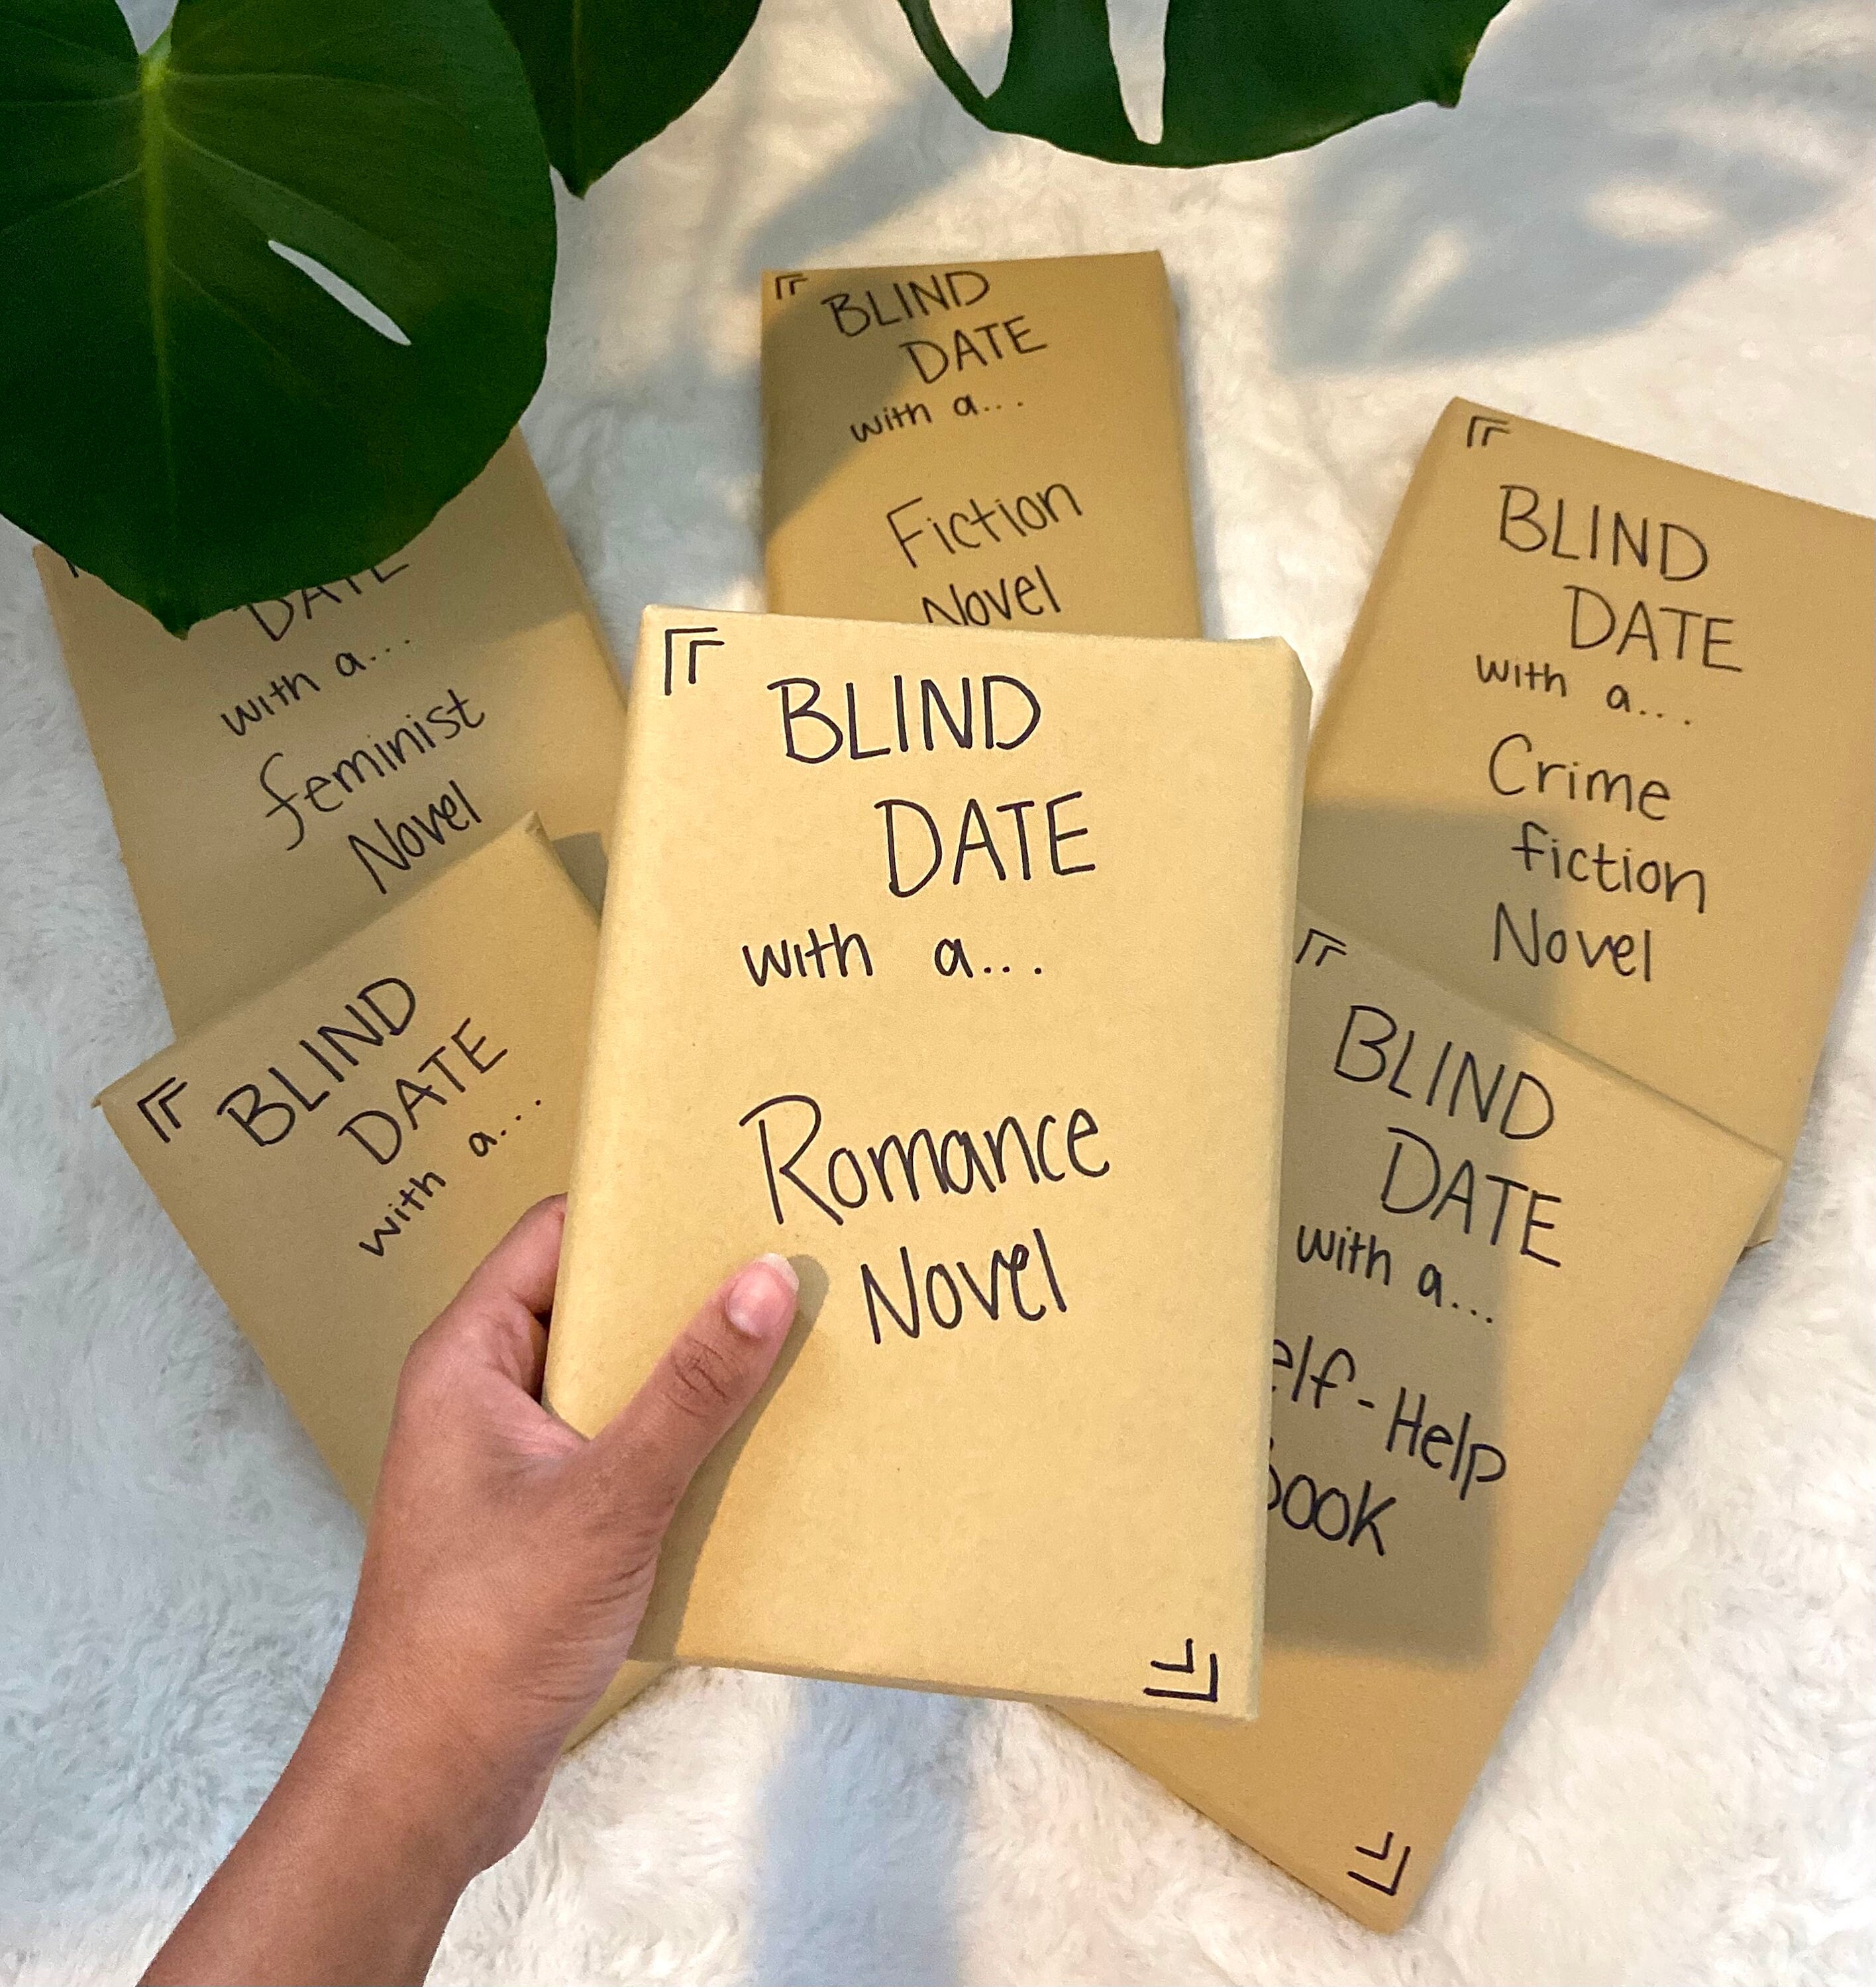 BLIND
DATE
with a...
Fiction
Novel
BLIND
DATE
with a...
Crime
fiction
Novel
DATE
with a...
feminist
Novel
BLIND
DATE
with a...
Romance
Novel
BLIND
DATE
with a...
BLIND
DATE
with a...
elf-Help
book